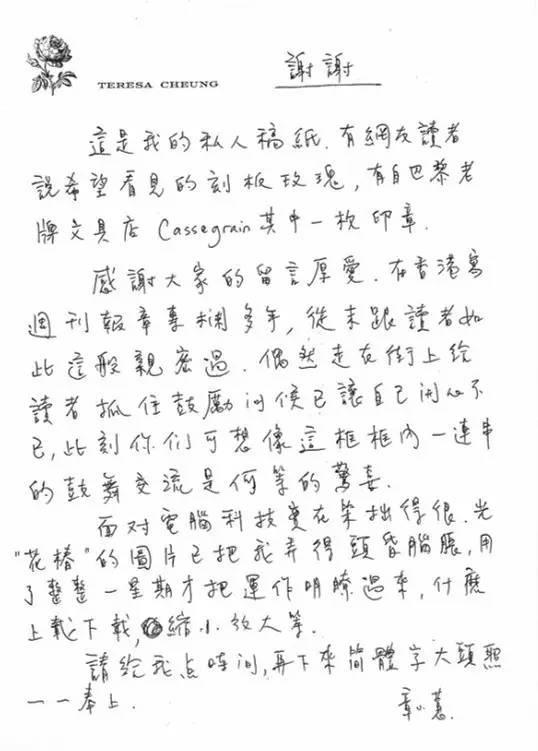 TERESA CHEUNG
謝謝
這是我的私人稿紙. 有網友讀者
説希望看見的刻板玫瑰, 有自巴黎老
牌文具店 Cassegrain 其中一枚印章.
感謝大家的留言厚愛. 在香港寫
週刊報章專欄多年, 從未跟讀者如
此這般親密過. 偶然走在街上給
讀者抓住鼓勵问候已讓自己開心不
已, 此刻你们可想像這框框內一連串
的鼓舞交流是何等的驚喜.
面对電腦科技實在笨拙得很. 光
"花椿"的圖片已把我弄得頭昏腦脹, 用
了整整一星期才把運作明瞭過來, 什麽
上載下載, 縮小放大等.
請给我点時间, 再下來简體字大頭照
一一奉上.
章小蕙.